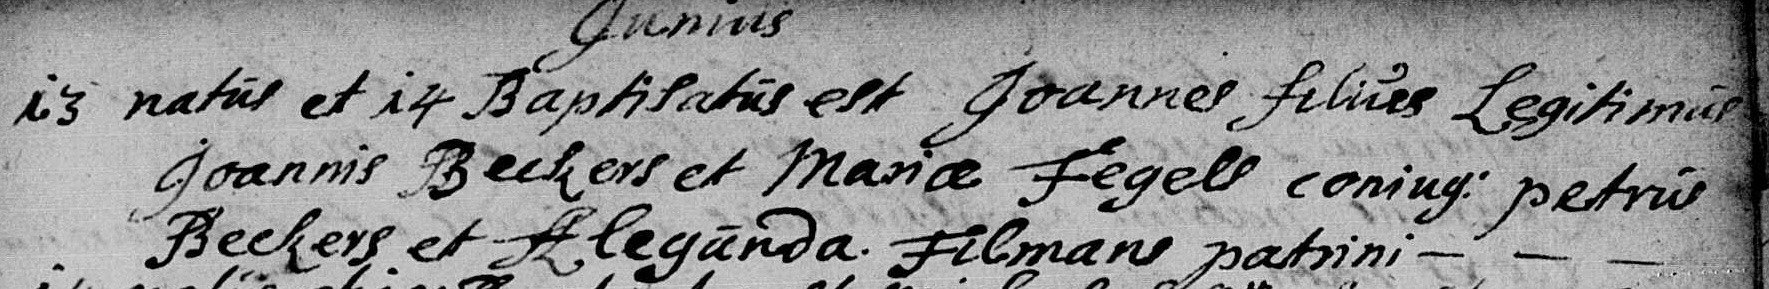 Junius
i3 natūs et i4 Baptisatūs est Joannes filiūs Legitimūs
Joannis Beckers et Mariæ Fegels coniug: petrūs
Beckers et Alegūnda. Filmans patrini - - -